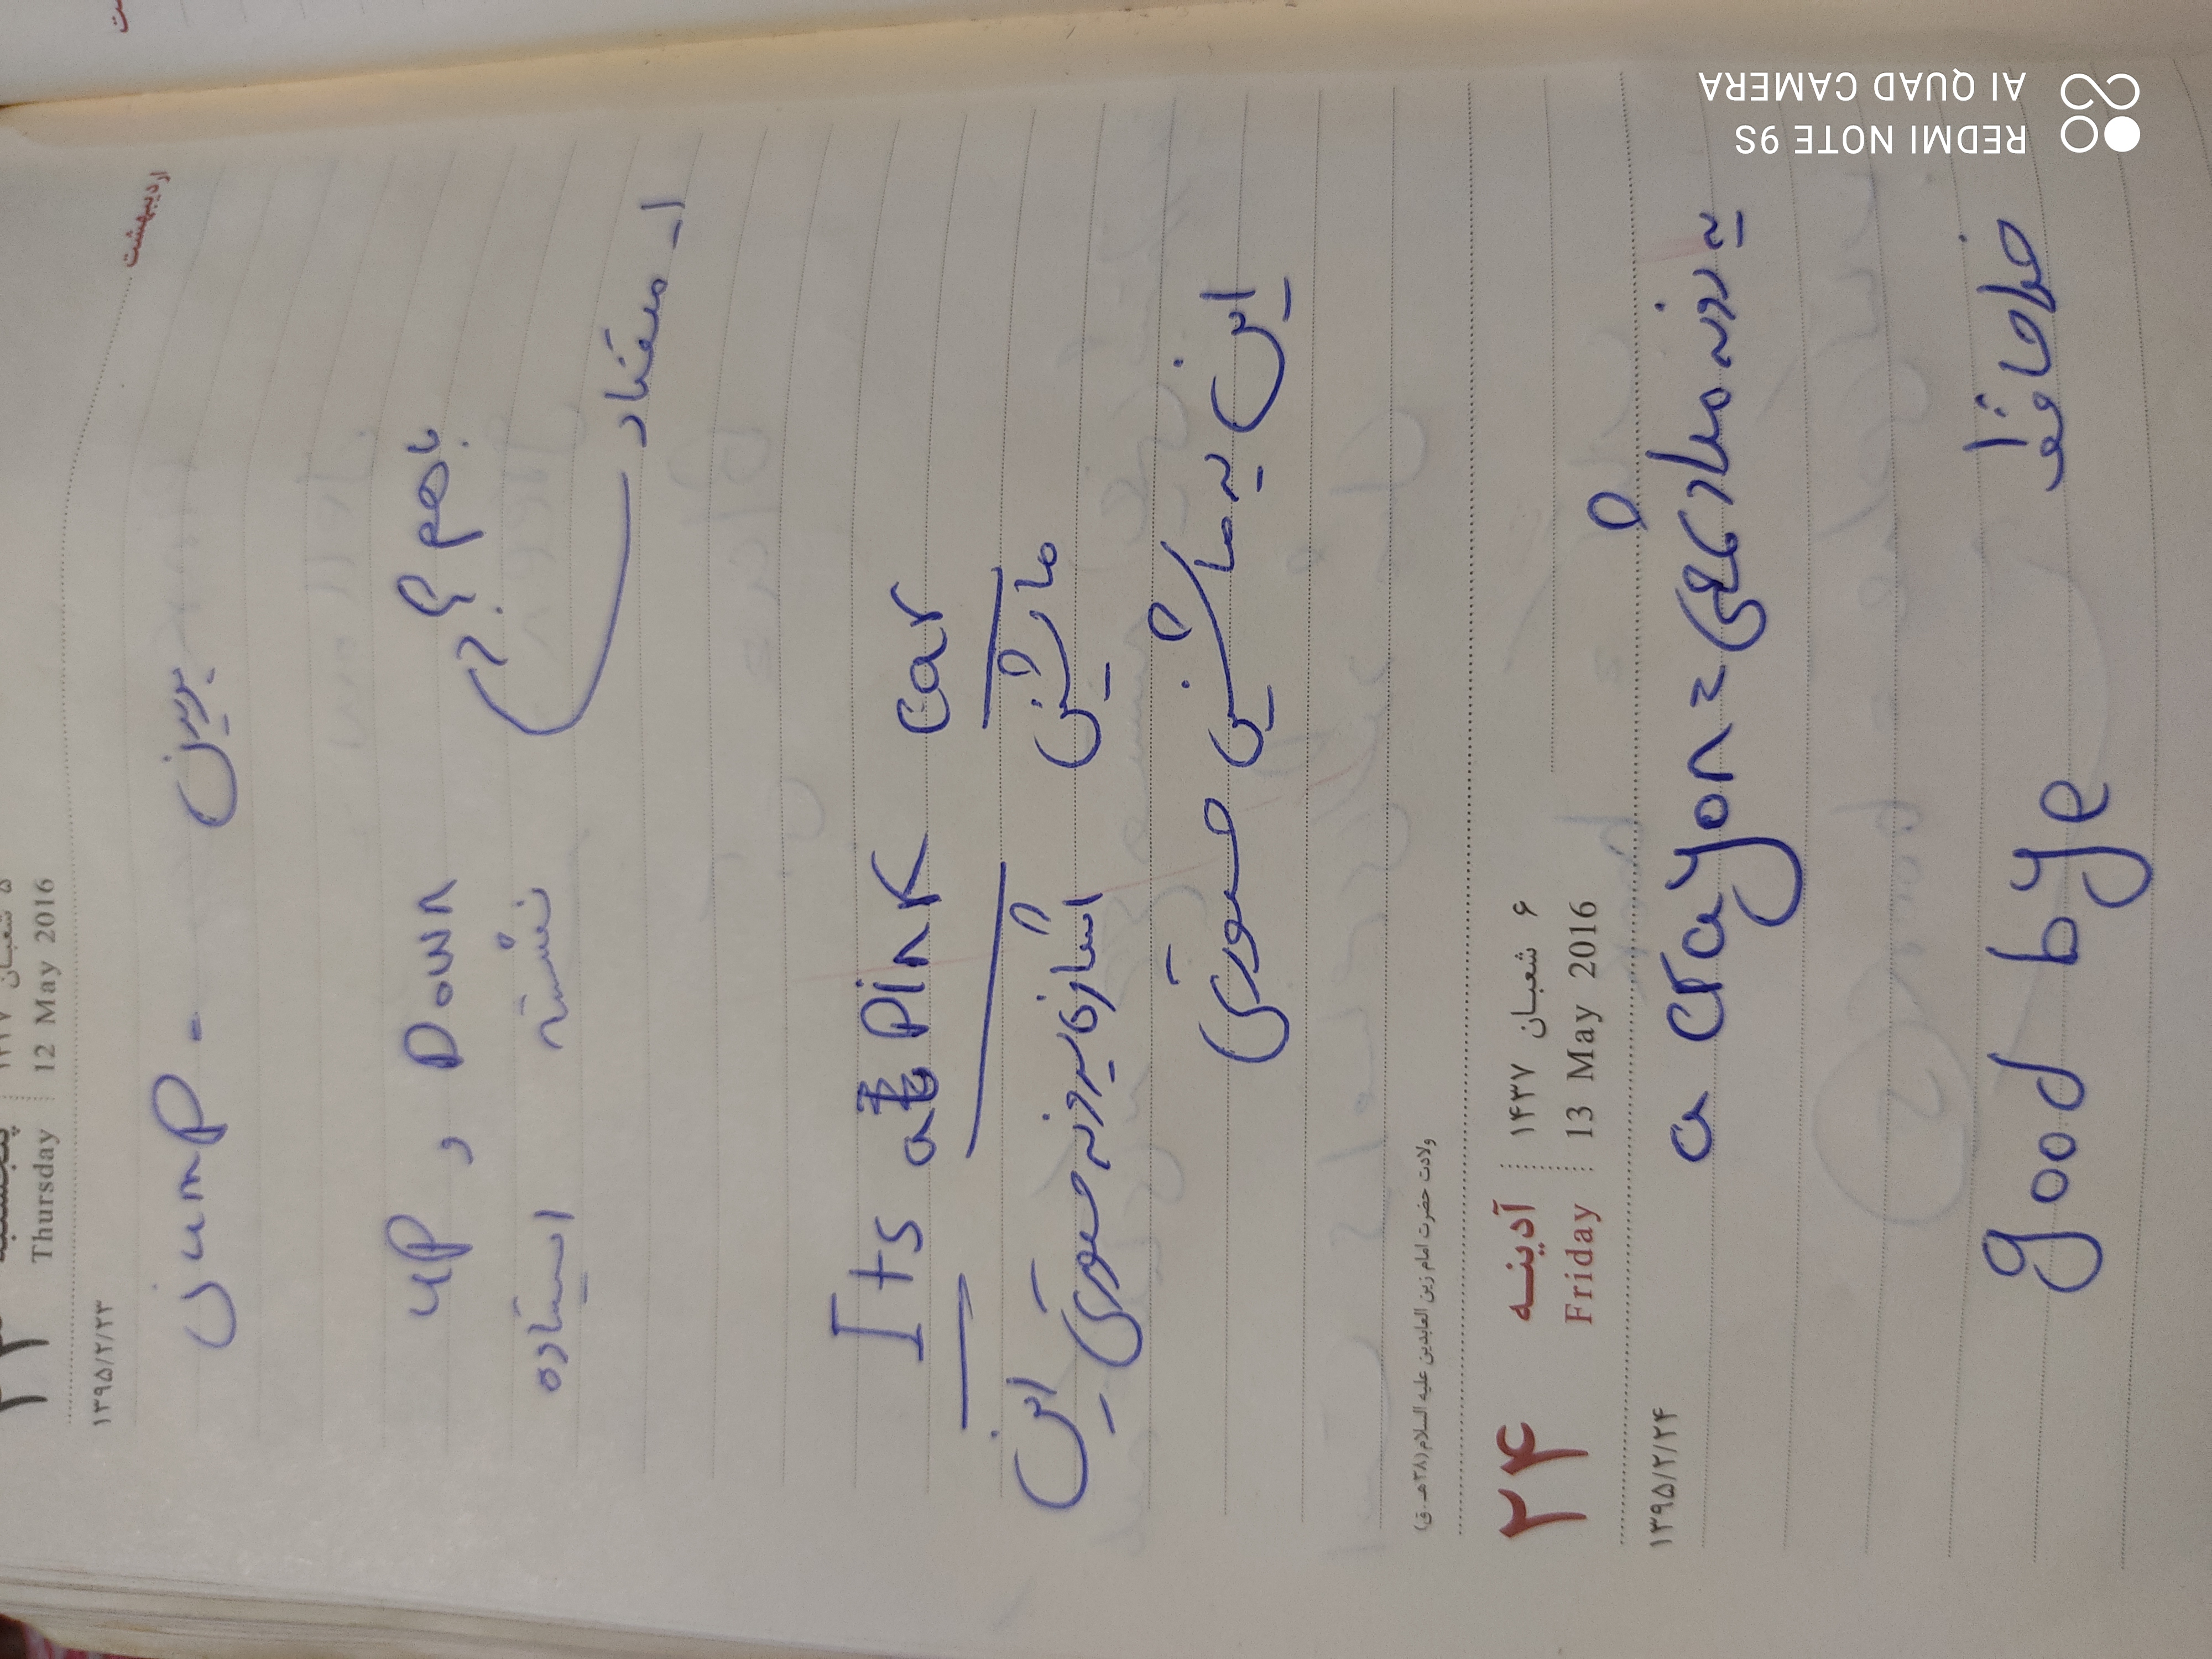 ۱۳۹۵/۲/۲۳ Thursday 12 May 2016
اردیبهشت
Jump - بپرین
up , Down
ایستاده نشسته
۱- متضاد
Its a Pink Car
این صورتی ماشین
این یه ماشین صورتی
ولادت حضرت امام زین العابدین علیه السلام (۳۸ هـ ق)
۲۴ آدینه ۶ شعبان ۱۴۳۷
۱۳۹۵/۲/۲۴ Friday 13 May 2016
a crayon = یدونه مداد شمعی
good bye خداحافظ
REDMI NOTE 9S
AI QUAD CAMERA